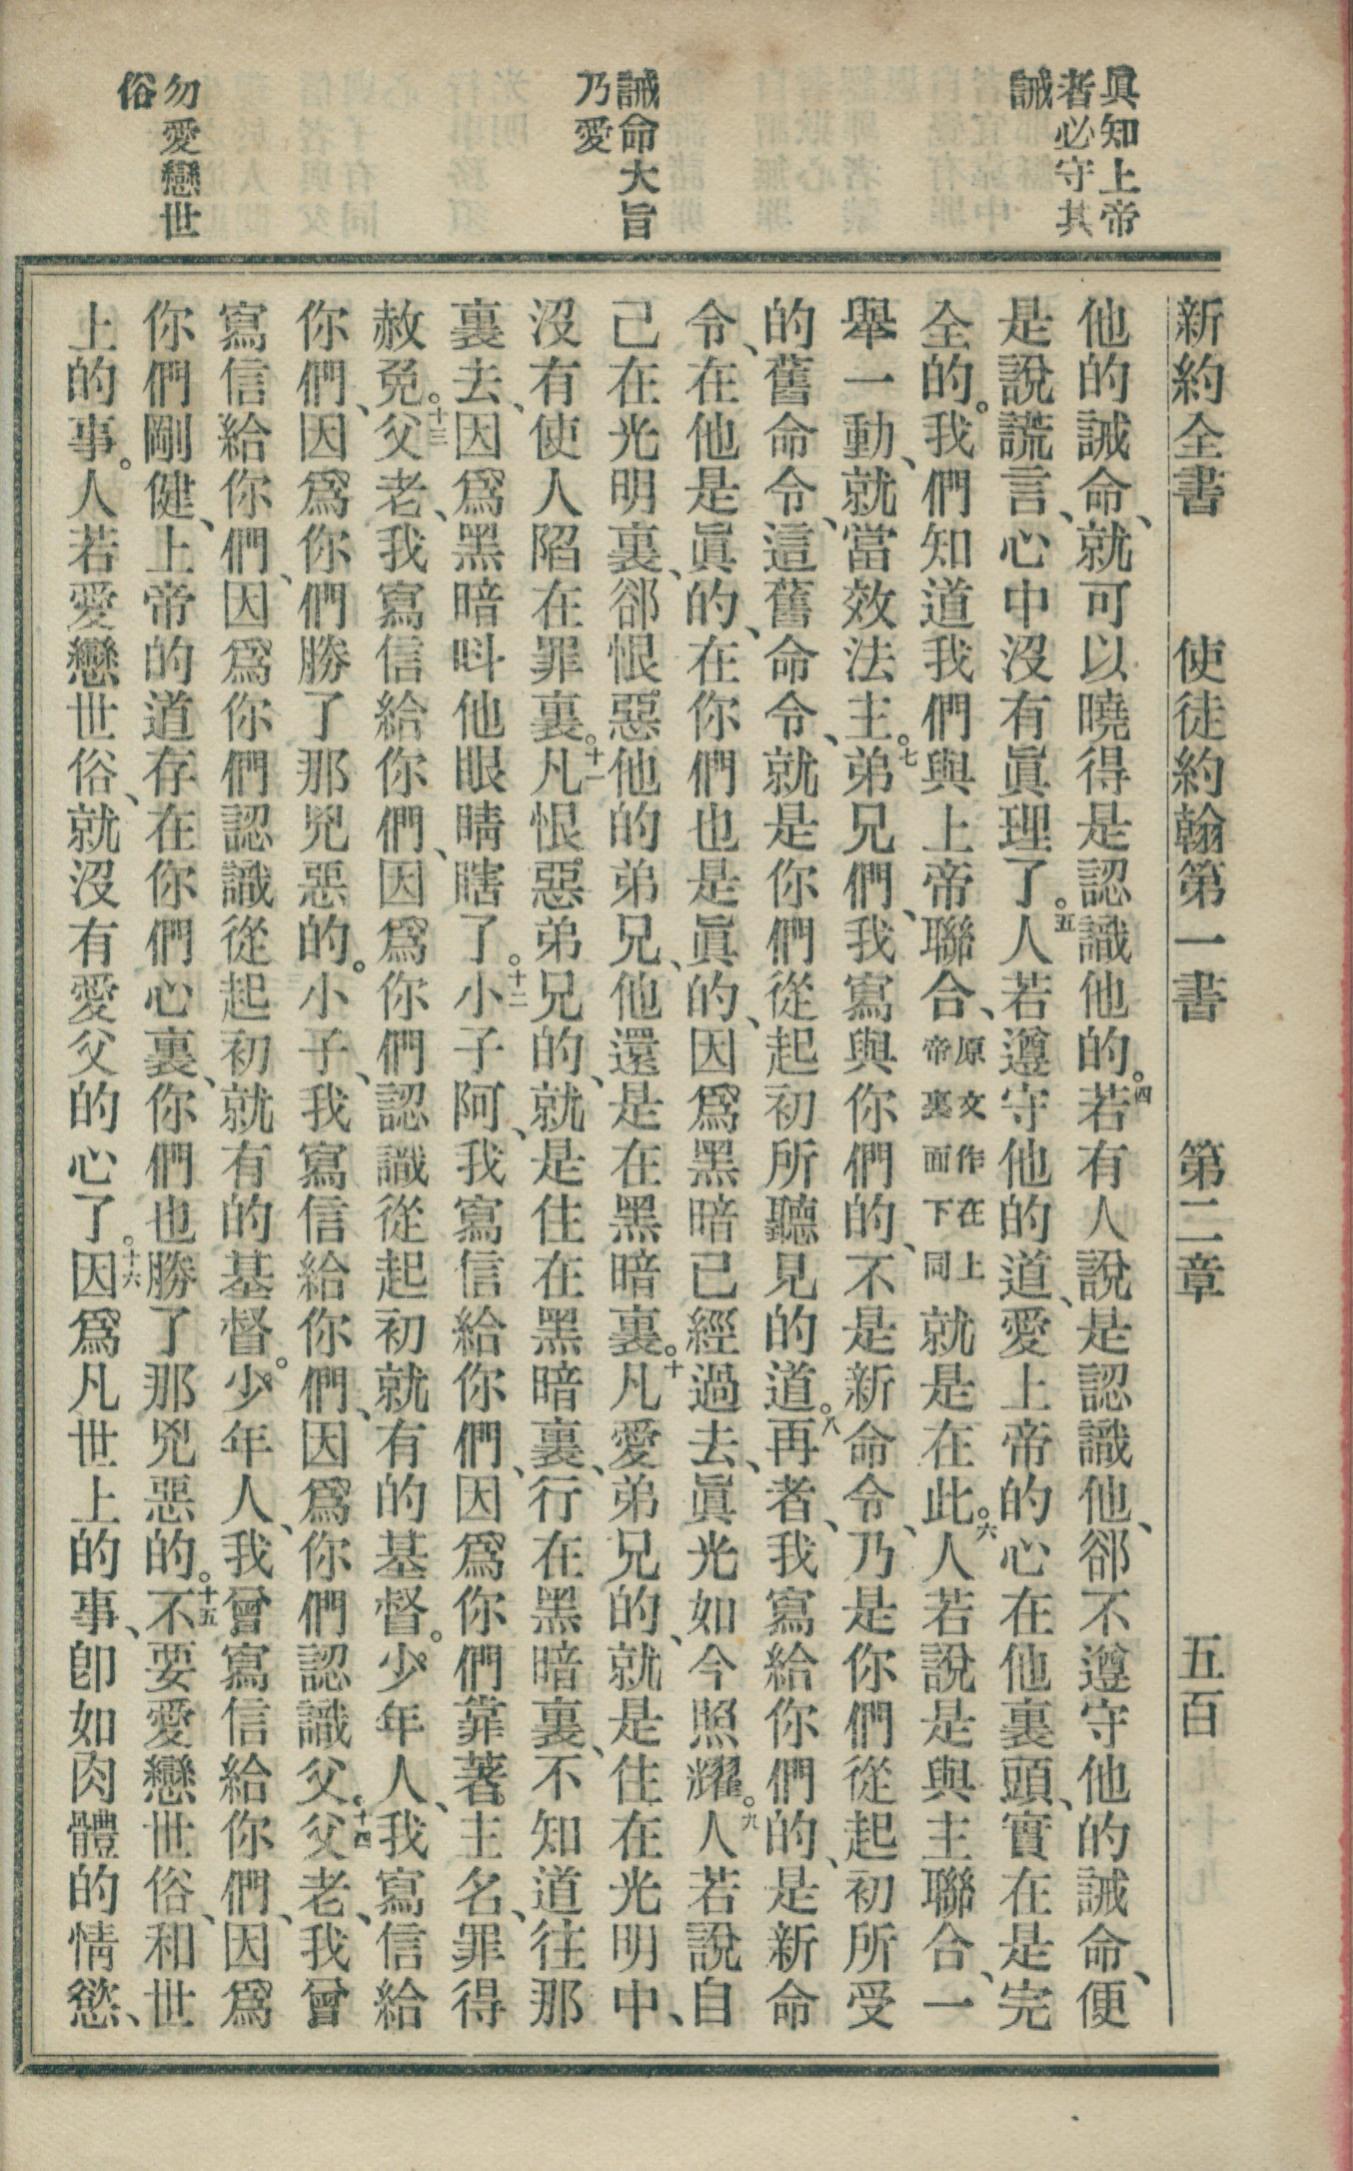 眞知上帝
者必守其
誡
誡命大旨
乃愛
勿愛戀世
俗
新約全書 使徒約翰第一書 第二章 五百
他的誡命、就可以曉得是認識他的。四若有人說是認識他、郤不遵守他的誡命、便
是說謊言、心中沒有眞理了。五人若遵守他的道、愛上帝的心在他裏頭、實在是完
全的。我們知道我們與上帝聯合、原文作在上帝裏面下同就是在此。六人若說是與主聯合、一
舉一動、就當效法主。七弟兄們、我寫與你們的、不是新命令、乃是你們從起初所受
的舊命令、這舊命令、就是你們從起初所聽見的道。八再者、我寫給你們的、是新命
令、在他是眞的、在你們也是眞的、因爲黑暗已經過去、眞光如今照耀。九人若說自
己在光明裏、郤恨惡他的弟兄、他還是在黑暗裏。十凡愛弟兄的、就是住在光明中、
沒有使人陷在罪裏。十一凡恨惡弟兄的、就是住在黑暗裏、行在黑暗裏、不知道往那
裏去、因爲黑暗呌他眼睛瞎了。十二小子阿、我寫信給你們、因爲你們靠著主名、罪得
赦免。十三父老、我寫信給你們、因爲你們認識從起初就有的基督。少年人、我寫信給
你們、因爲你們勝了那兇惡的。小子、我寫信給你們、因爲你們認識父。十四父老、我曾
寫信給你們、因爲你們認識從起初就有的基督。少年人、我曾寫信給你們、因爲
你們剛健、上帝的道存在你們心裏、你們也勝了那兇惡的。十五不要愛戀世俗、和世
上的事。人若愛戀世俗、就沒有愛父的心了。十六因爲凡世上的事、卽如肉體的情慾、